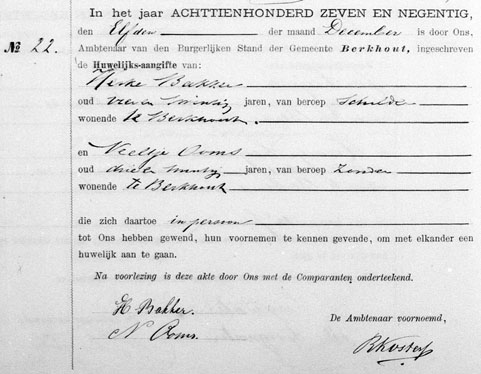 In het jaar ACHTTIENHONDERD ZEVEN EN NEGENTIG,
den Elfden der maand December is door Ons,
№ 22. Ambtenaar van den Burgerlijken Stand der Gemeente Berkhout, ingeschreven
de Huwelijks-aangifte van:
Bakker
oud vier en twintig jaren, van beroep Schilder
wonende te Berkhout.
en Neeltje Ooms
oud drie en twintig jaren, van beroep Zonder
wonende te Berkhout
die zich daartoe in persoon
tot Ons hebben gewend, hun voornemen te kennen gevende, om met elkander een
huwelijk aan te gaan.
Na voorlezing is deze akte door Ons met de Comparanten onderteekend.
H. Bakker
N. Ooms.
De Ambtenaar voornoemd,